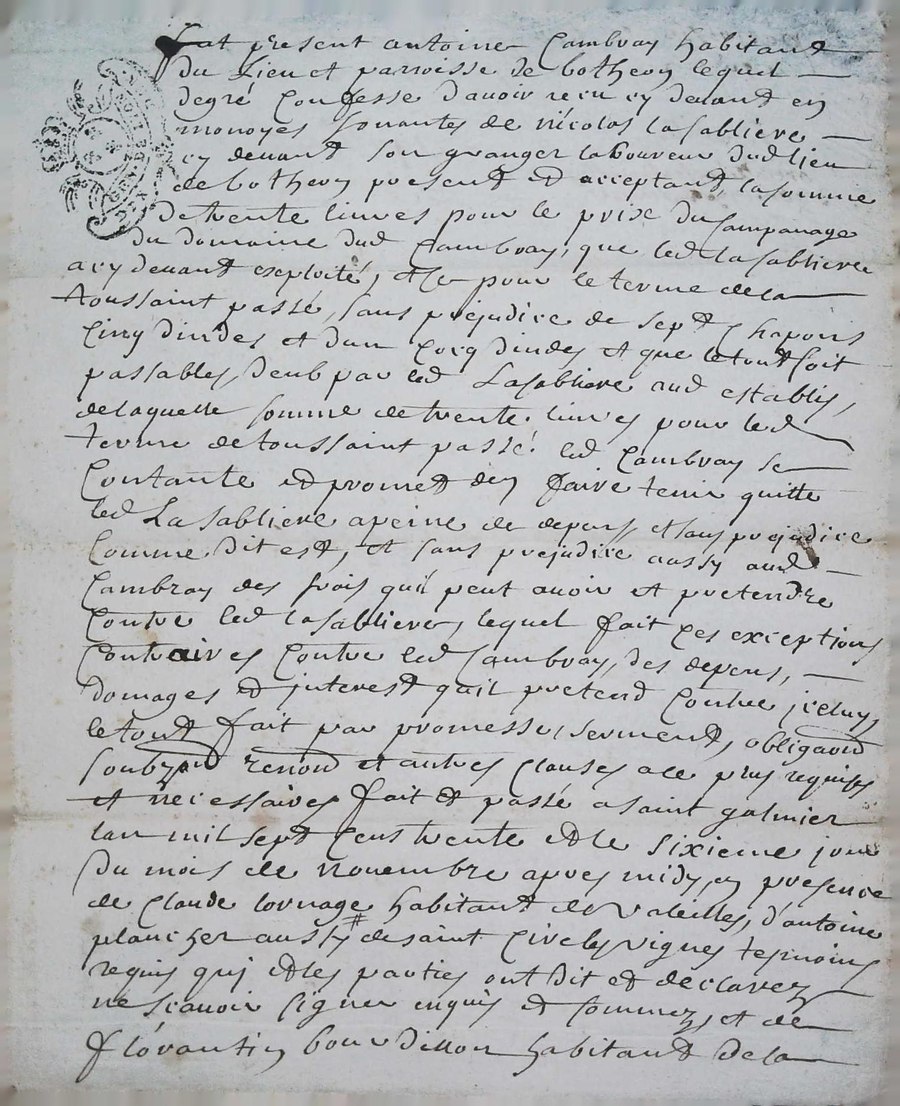 fut present antoine Cambray habitand
du Lieu et parroisse de botheon lequel
degré Confesse d'avoir recu cy devand en
monoyes sonantes de nicolas lasabliere
cy devand son granger laboureur dud lieu
de botheon presend et acceptand, la somme
de trente livres pour le prix du
du domaine dud Cambray, que led lasabliere
a cy devand exploité, et ce pour le terme de la
toussaint passé, sans prejudice de sept Chapons
Cinq dindes et dun Cocq dindes et que le tout soit
passables, deub par led Lasabliere aud establis,
de laquelle somme de trente livres pour led
terme de toussaint passé led Cambray se
Contante et promet den faire tenir quitte
led Lasabliere a peine de depens, et sans prejudice
Comme dit est, et sans prejudice aussy aud
Cambray des frois quil peut avoir et pretendre
Contre led lasabliere, lequel fait ses exceptions
Contraires Contre led Cambray, des depens,
domages et interest quil pretend Contre jceluy,
le tout fait par promesse, serment, obligaond
renond et autres Clauses a ce plus requises
et necessaires fait et passé a saint galmier
lan mil sept Cens trente et le sixieme jour
du mois de novembre apres midy, en presence
de Claude tornage habitand de valeilles, d'antoine
plancher aussy # de saint Cire les vignes tesmoins
requis quj et les parties ont dit et declarez
ne scavoir signer enquis et sommez, et de
florantin bourdillon habitand de la